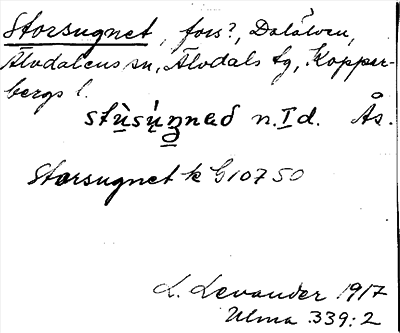 Storsugnet, fors?, Dalälven,
Älvdalens sn, Älvdals tg, Kopper-
bergs l.
n. I d. Ås.
Storsugnet k G 10750
L. Levander 1917
Ulma 339:2